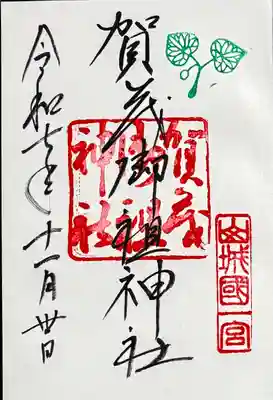 山城國一宮
賀茂御祖神社
賀茂御祖神社
令和七年十一月卅日